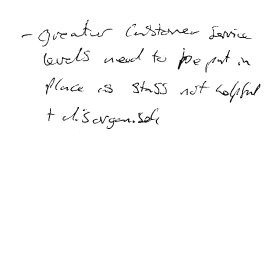 - greater Customer Service
levels need to be put in
place as staff not helpful
+ disorganised